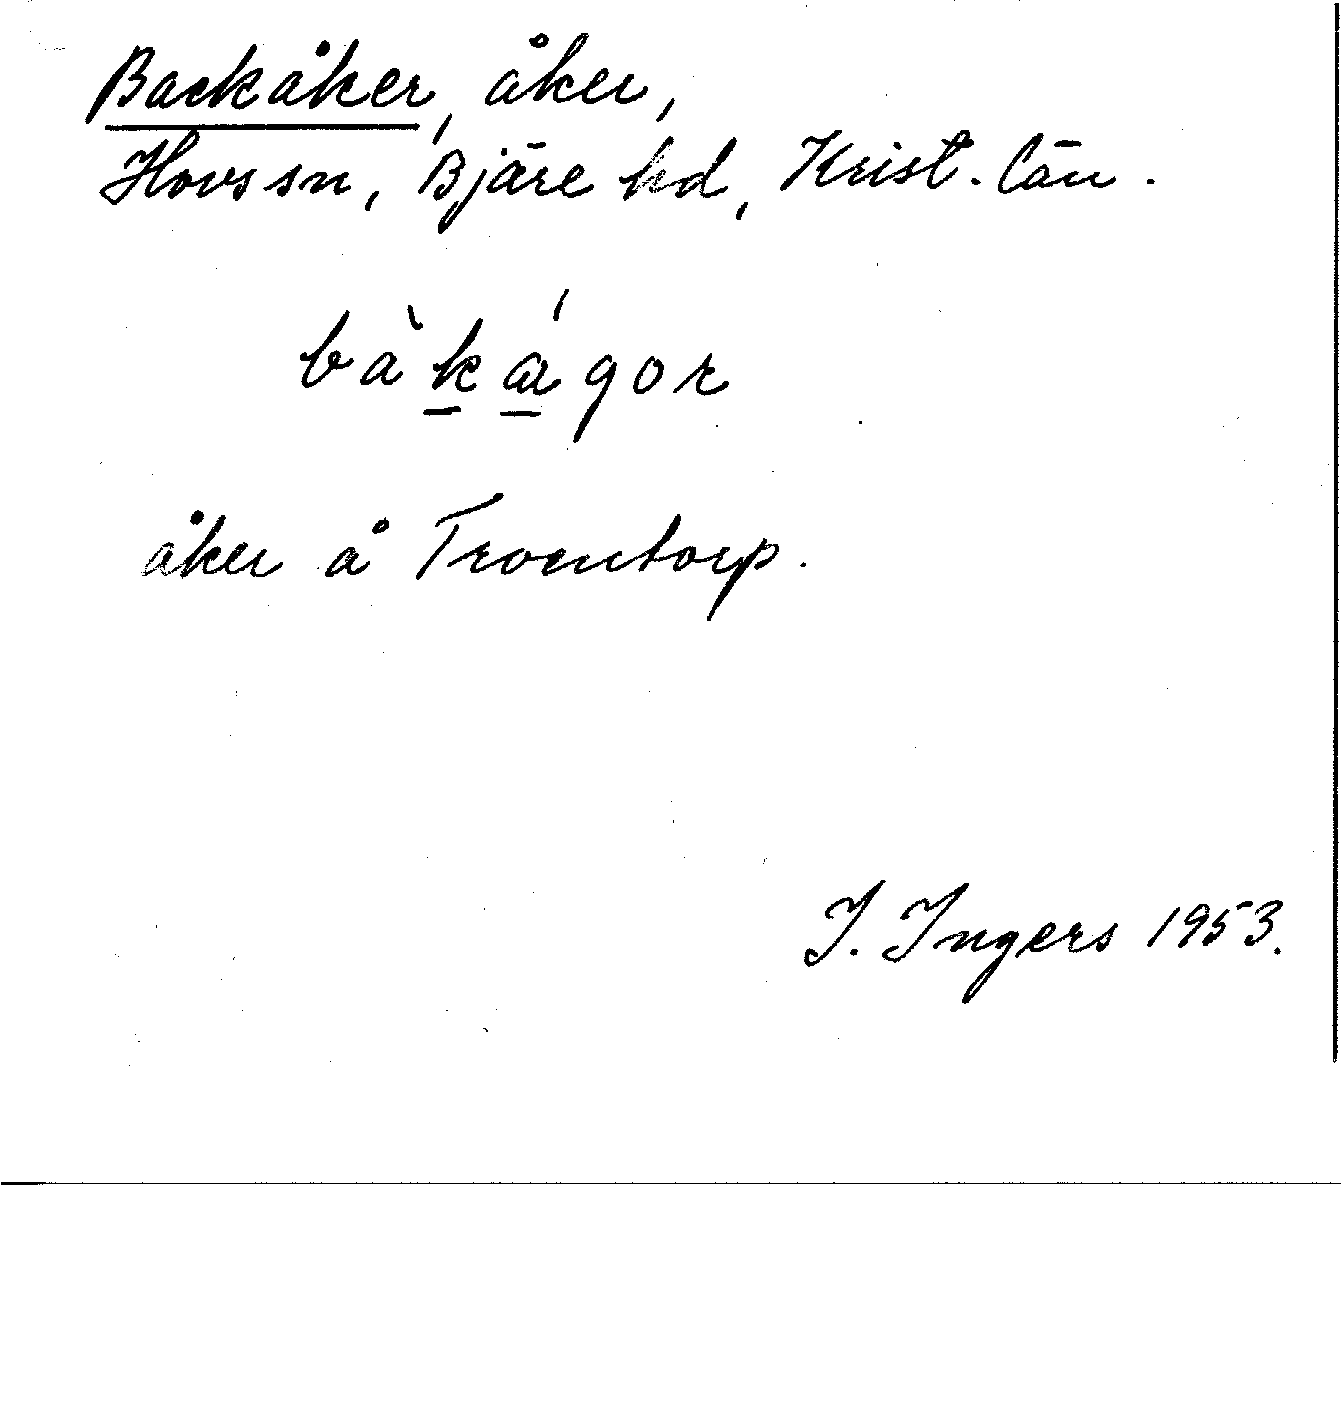 Backåker, åker,
Hovs sn, Bjäre hd, Krist. län.
bàkágor
åker å Troentorp.
I. Ingers 1953.